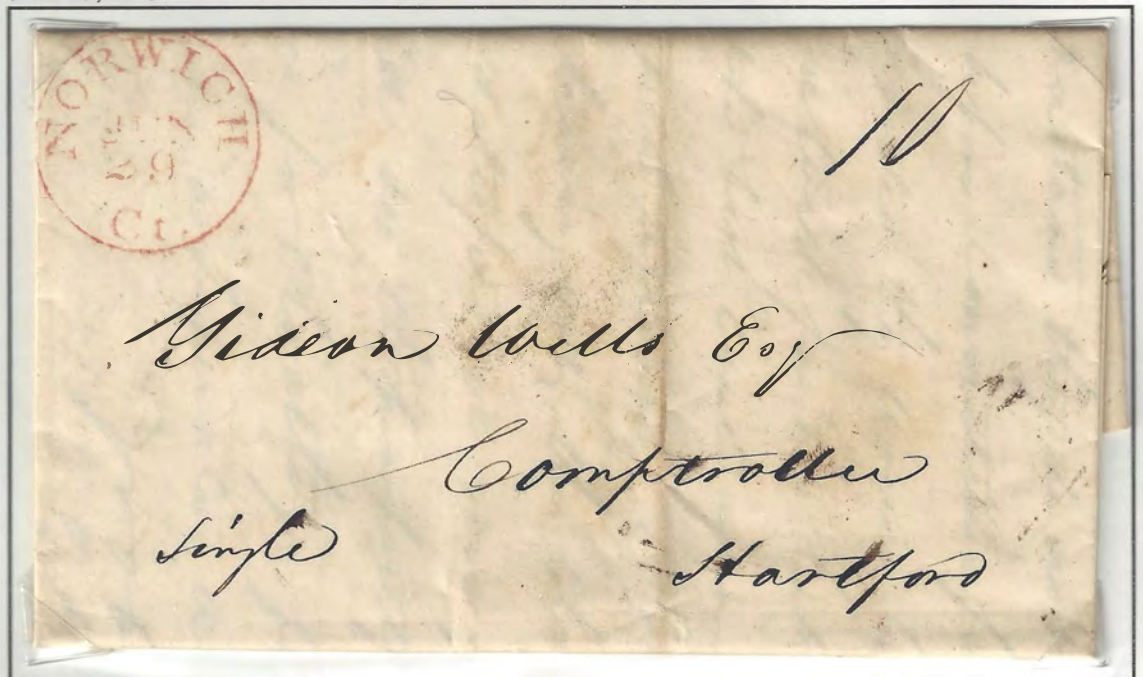 NORWICH
JUN
29
Ct.
10
Gideon Wells Esq
Comptroller
single
Hartford